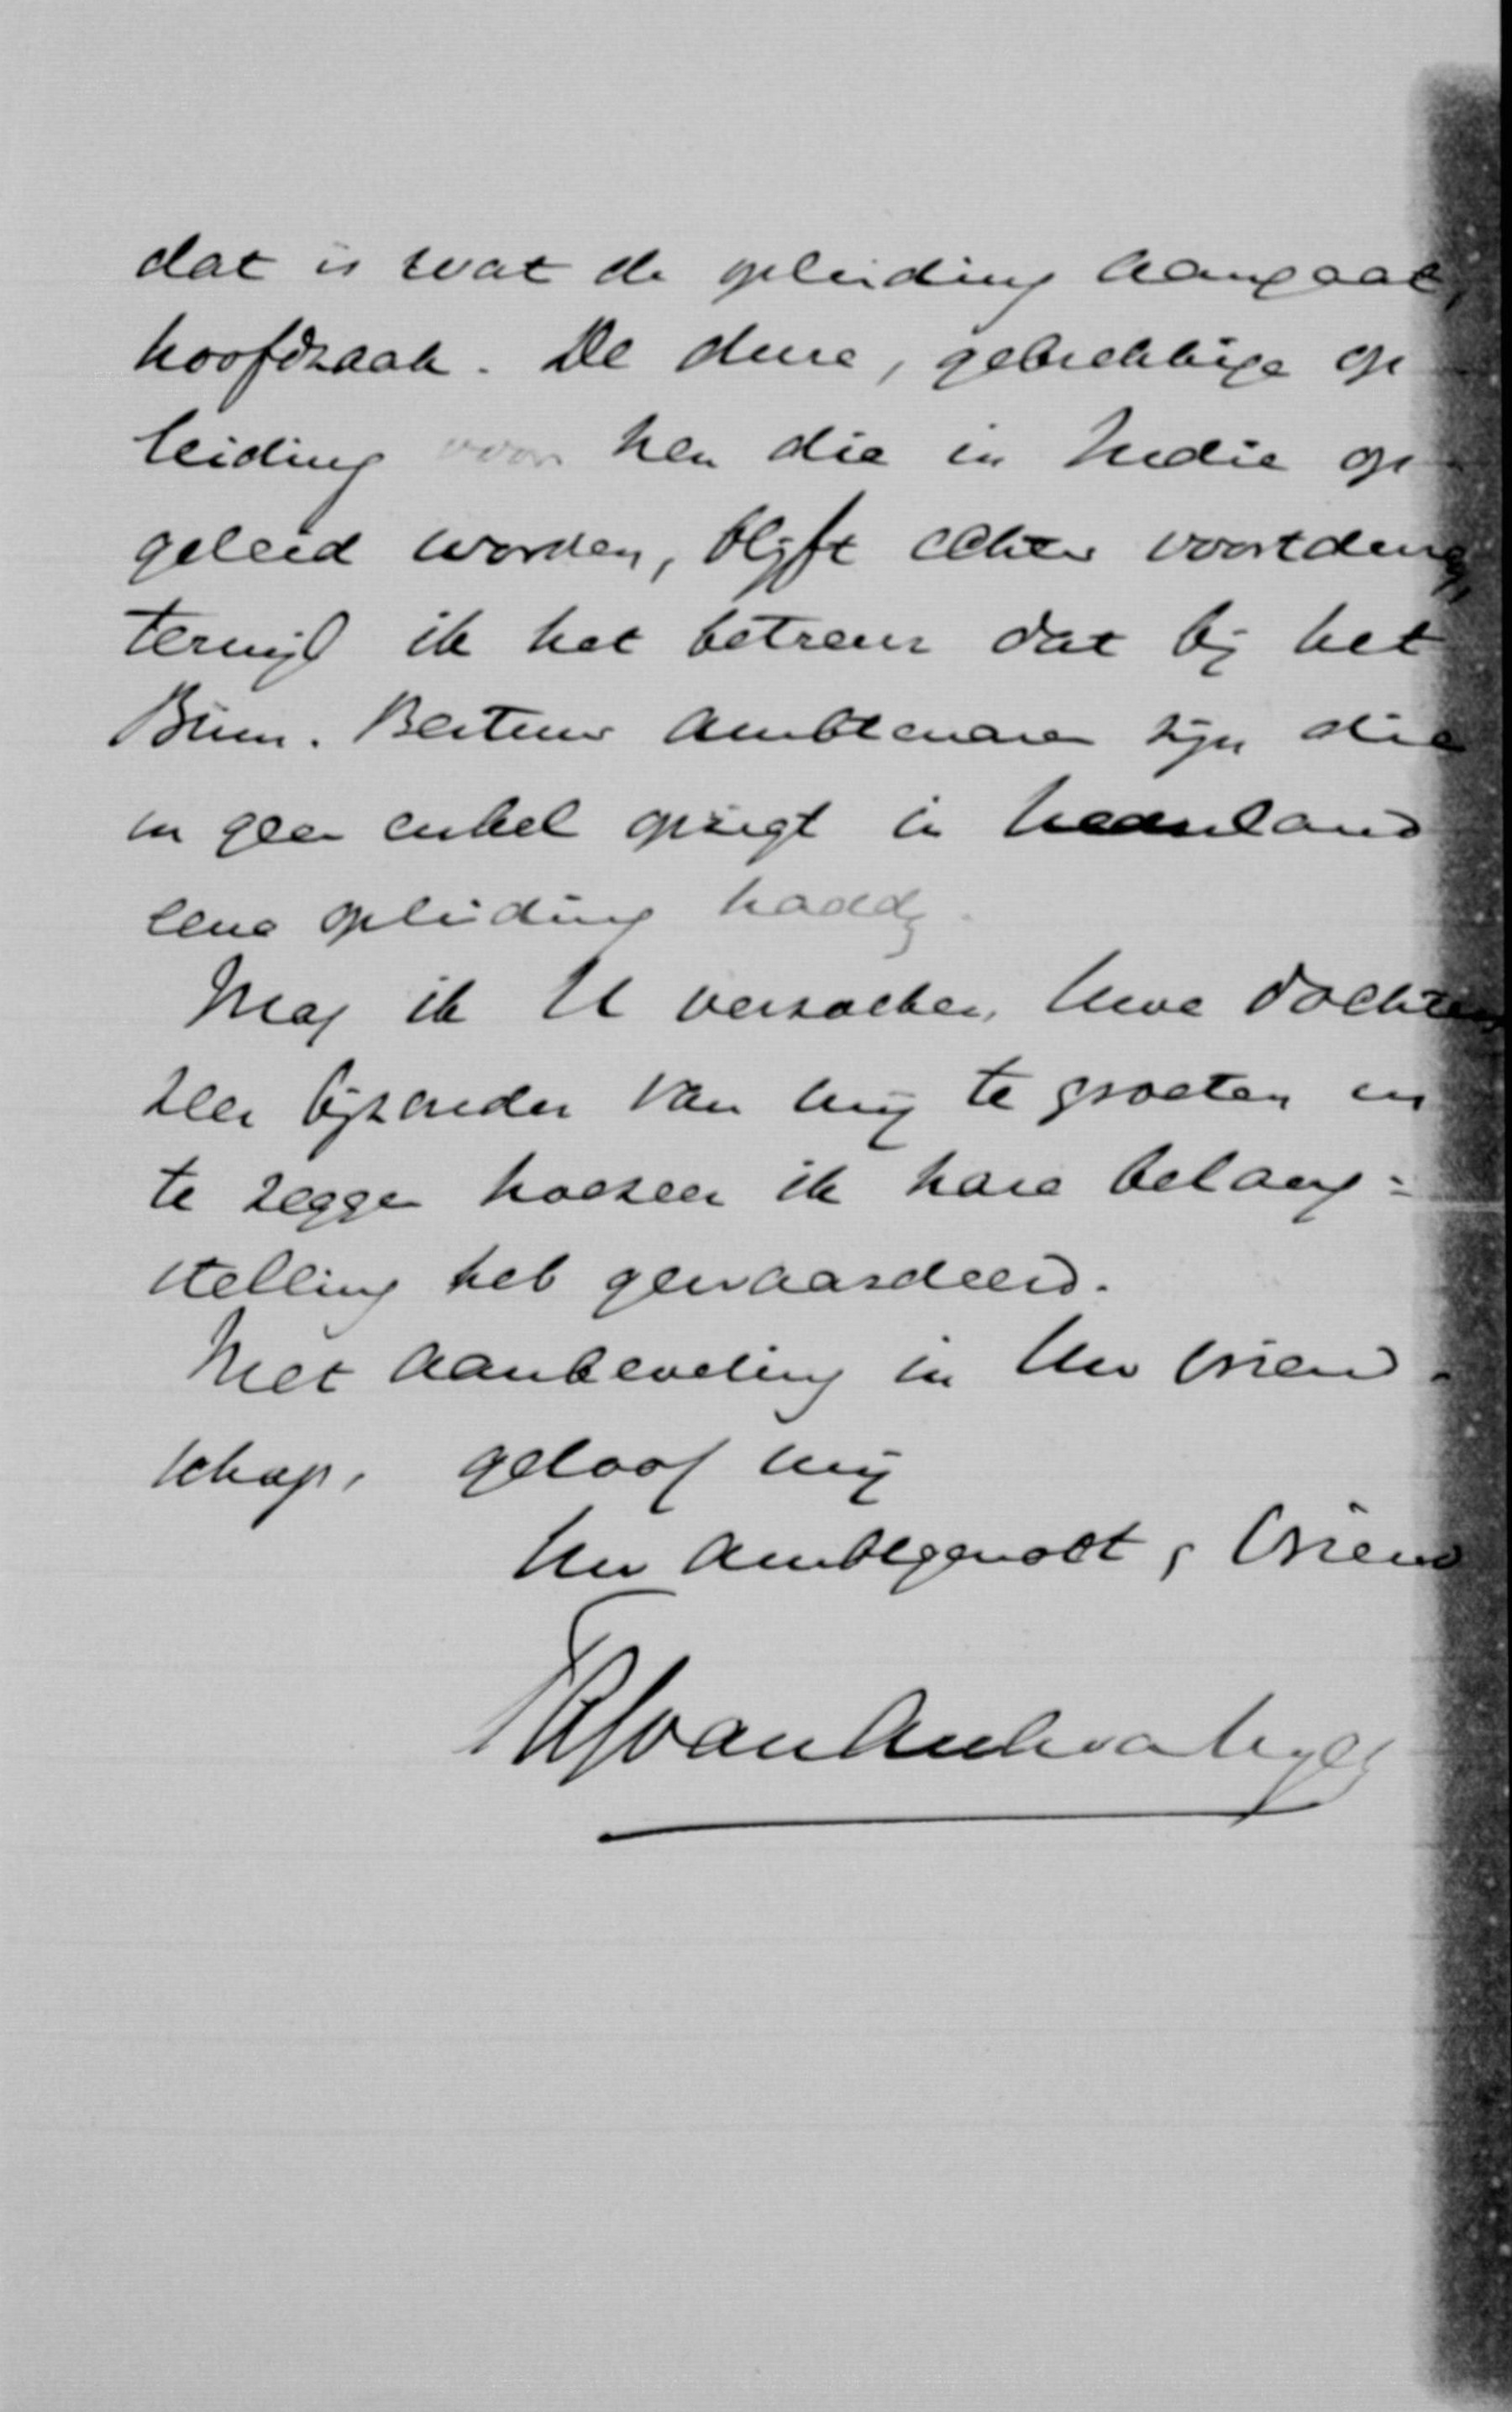 dat is wat de opleiding aangaat,
hoofdzaak. De dure, gebrekkige op
leiding voor hen die in Indie op-
geleid worden, blyft echter voortduren,
terwijl ik het betreur dat bij het
Binn. Bestuur ambtenaren zijn die
in geen enkel opzigt in Nederland
eene opleiding hadden.
Mag ik U verzoeken, Uwe dochter
zeer bijzonder van mij te groeten en
te zeggen hoezeer ik hare belang=
stelling heb gewaardeerd.
Met aanbeveling in Uw vriend-
schap, geloof mij
Uw ambtgenoot, vriend